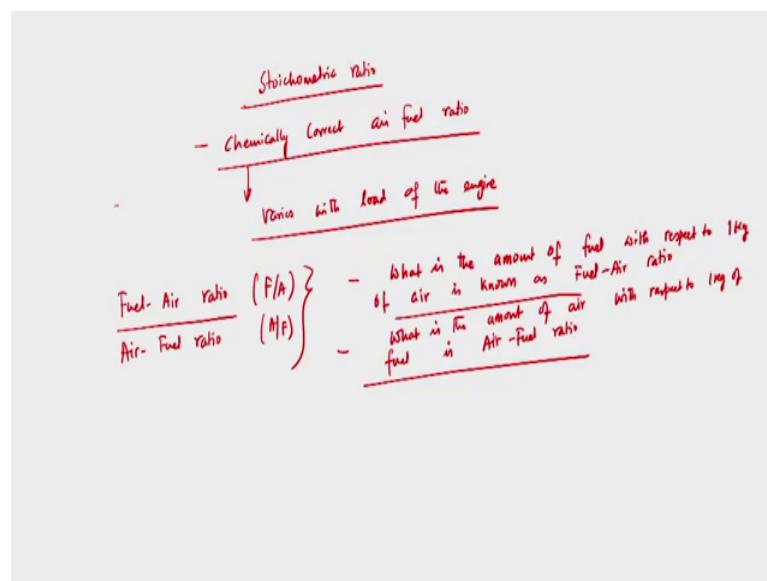 Stoichometric ratio
- Chemically Correct air fuel ratio
Varies with load of the engine
Fuel-Air ratio (F/A) } - What is the amount of fuel with respect to 1kg
of air is known as Fuel-Air ratio
Air-Fuel ratio (A/F) - What is the amount of air with respect to 1kg of
fuel is Air-Fuel ratio